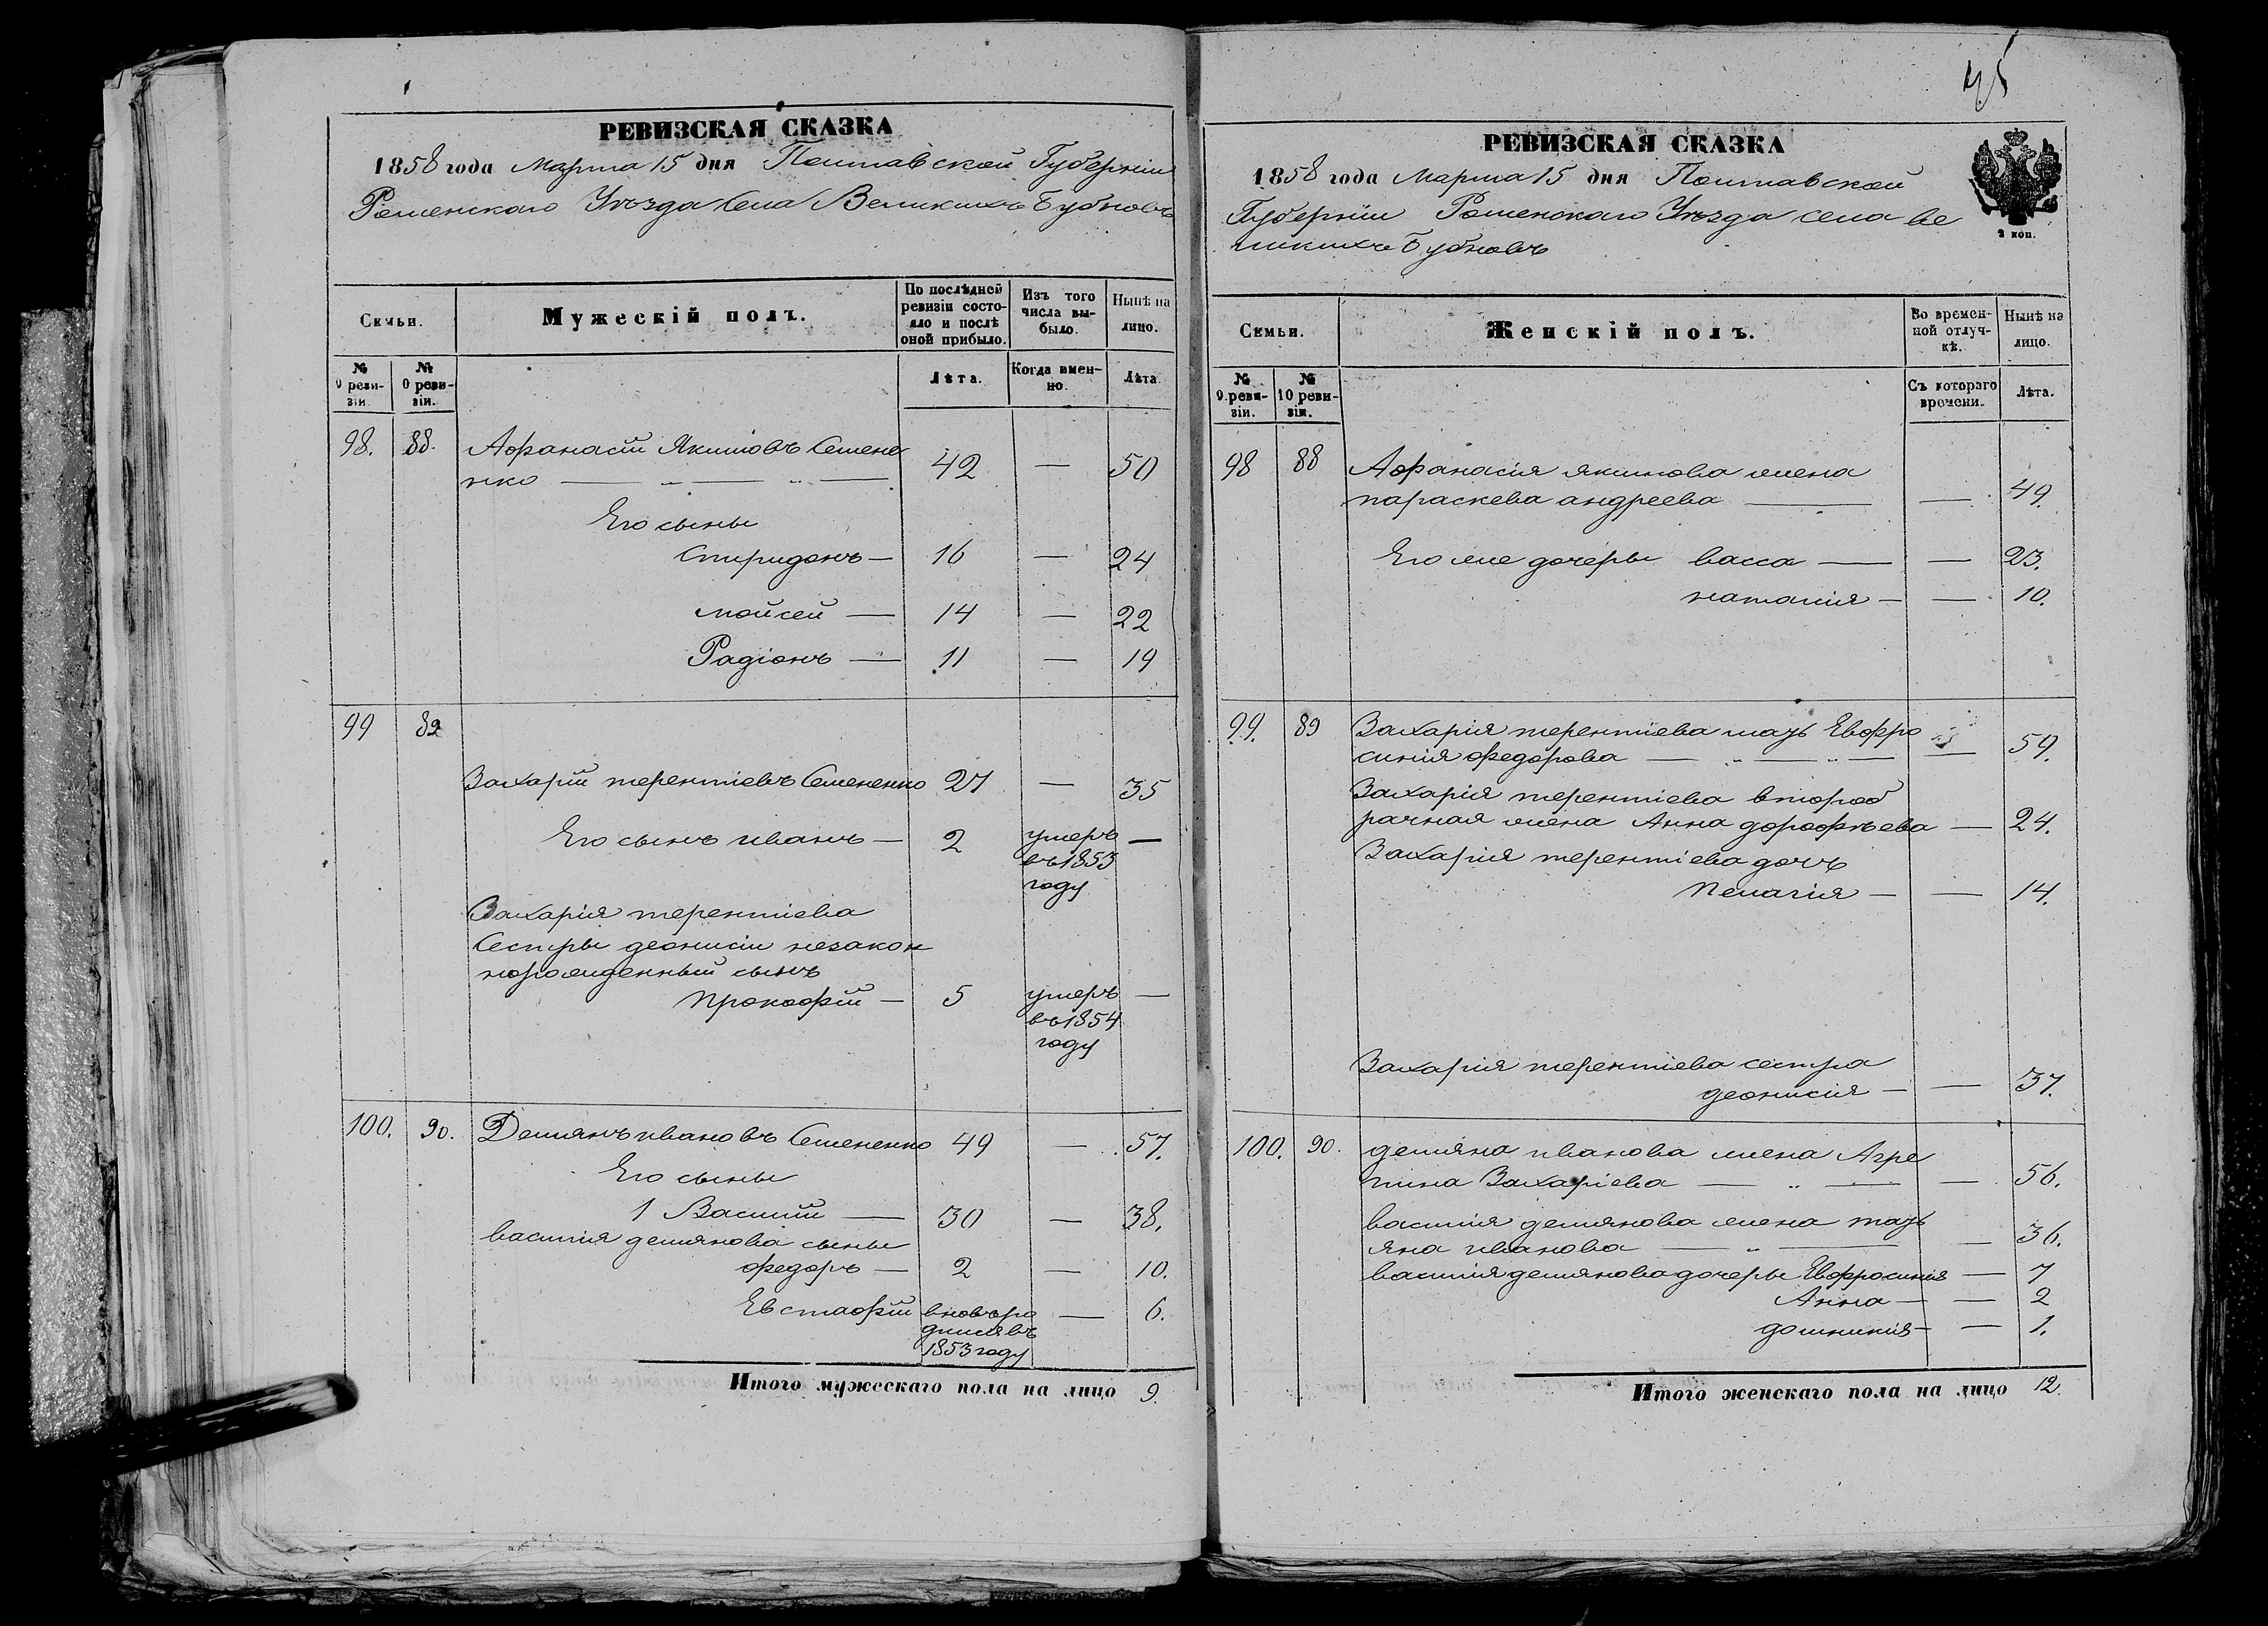 РЕВИЗСКАЯ СКАЗКА
1858 года Марта 15 дня Полтавской Губерніи
Роменскаго Уѣзда Села Великихъ Бубновъ
Семьи.
Мужескій полъ.
По послѣдней ревизіи состояло и послѣ оной прибыло.
Изъ того числа выбыло.
Нынѣ на лицо.
№ 9 ревизіи.
№ 10 ревизіи.
Лѣта.
Когда именно.
Лѣта.
98. 88. Афанасій Якимовъ Семене
нко — „ — „ — 42 — 50
Его сыны
Спиридонъ — 16 — 24
мойсей — 14 — 22
Радіонъ — 11 — 19
99 89
Захарій терентіевъ Семененко 27 — 35
Его сынъ иванъ — 2 умеръ —
въ 1853
году
Захарія терентіева
Сестры деонисіи незакон
норожденный сынъ
Прокофій — 5 умеръ —
въ 1854
году
100. 90. Демянъ ивановъ Семененко 49 — 57.
Его сыны
1 Василій — 30 — 38.
василія демянова сыны
федоръ — 2 — 10.
Евстафій вновъ ро — 6.
дился въ
1853 году
Итого мужескаго пола на лицо 9.
45
РЕВИЗСКАЯ СКАЗКА
1858 года Марта 15 дня Полтавской
Губерніи Роменскаго Уѣзда села Ве
ликихъ Бубновъ
2 коп.
Семьи.
Женскій полъ.
Во временной отлучкѣ.
Нынѣ на лицо.
№ 9 ревизіи.
№ 10 ревизіи.
Съ котораго времени.
Лѣта.
98 88 Афанасія якимова жена
параскева андреева — — 49.
Его же дочеры васса — — 23.
наталія — — 10.
99. 89 Захарія терентіева мать Евфро
синія федорова — „ — „ — — 59.
Захарія терентіева второб
рачная жена Анна дорофѣева — 24.
Захарія терентіева дочъ
Пелагія — — 14.
Захарія терентіева сестра
деонисія — — 37.
100. 90. демяна иванова жена Агре
пина Захаріева — „ — — 56.
василія демянова жена тать
яна иванова — „ — — 36.
василія демянова дочеры Евфросинія — 7
Анна — — 2
домникія — — 1.
Итого женскаго пола на лицо 12.